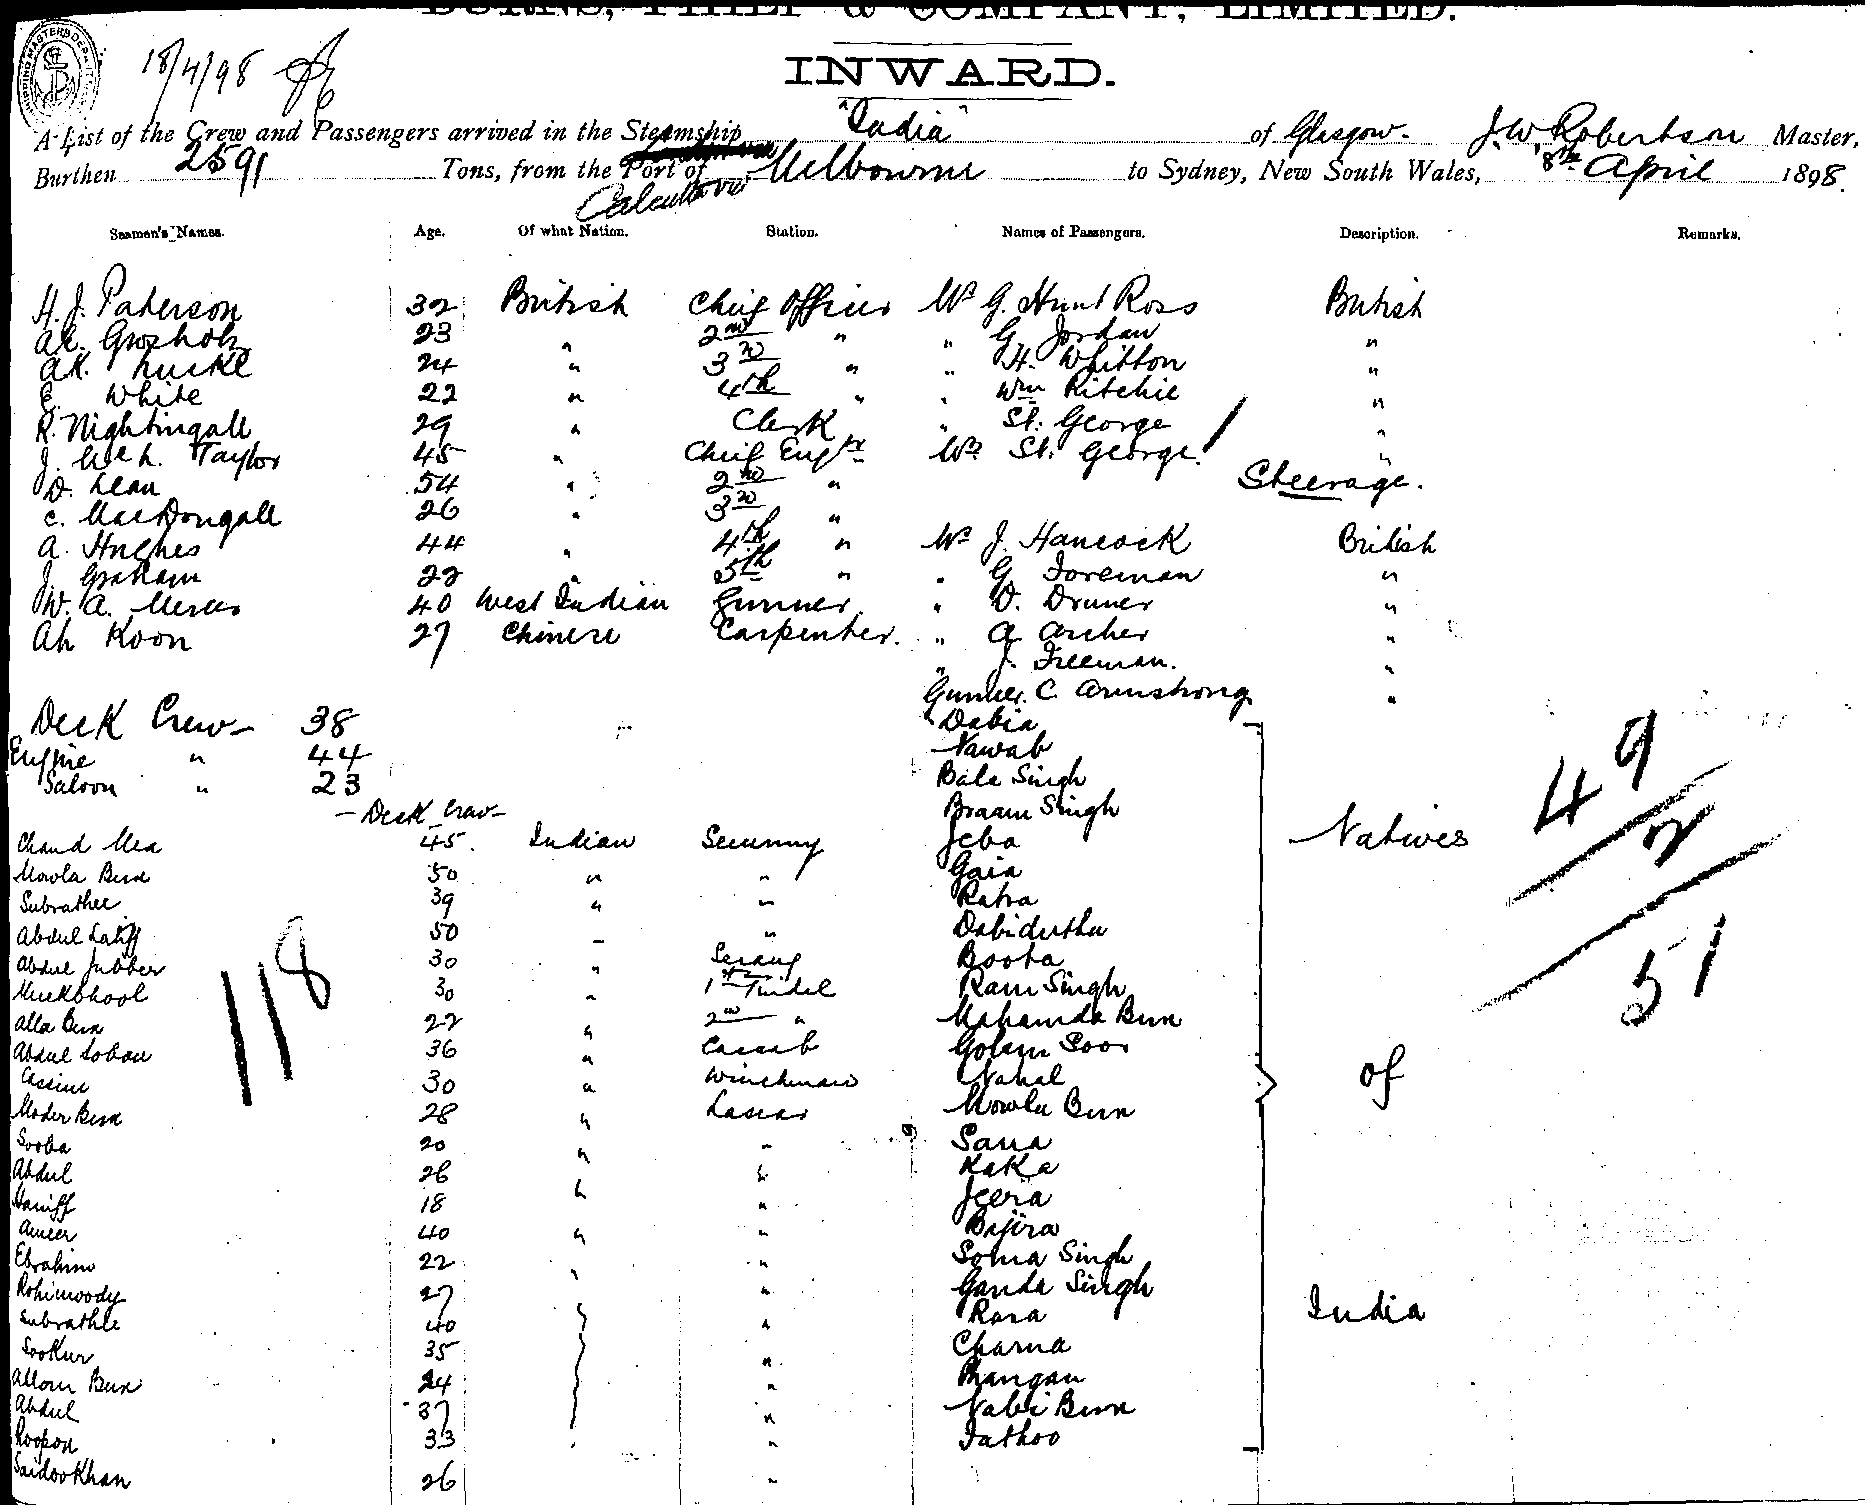 BURNS, PHILP & COMPANY, LIMITED.
18/4/98
INWARD.
A List of the Crew and Passengers arrived in the Steamship "India" of Glasgow. J. W. Robertson Master,
Burthen 2591 Tons, from the Port of Melbourne to Sydney, New South Wales, 8th April 1898.
Calcutta
Seamen's Names. Age. Of what Nation. Station. Names of Passengers. Description. Remarks.
H. J. Paterson 32 British Chief Officer Mr G. Hunt Ross British
23 " 2nd " " G. Jordan "
A.K. Luskl 24 " 3rd " " H. Whitton "
E. White 22 " 4th " " Wm Ritchie "
R. Nightingall 29 " Clerk " St. George "
J. Taylor 45 " Chief Engr Mrs St. George "
D. Lean 54 " 2nd " Steerage.
C. MacDougall 26 " 3rd "
A. Hughes 44 " 4th " Mr J. Hancock British
J. Graham 22 " 5th " " G. Foreman "
W. A. 40 West Indian Gunner " D. Druner "
Ah Koon 27 Chinese Carpenter. " A. Archer "
" J. Freeman. "
Gunner. C. Armstrong "
Deck Crew - 38 Dabia
Engine " 44 Nawab
Saloon " 23 Bala Singh
- Deck Crew - Braam Singh
Chand Mea 45. Indian Secunny Jeba Natives
Mowla Bux 50 " " Gaia
Subrathee 39 " " Ratra
Abdul Latiff 50 " " Dabidutha
Abdul Jubber 30 " Serang Boota
Muckbhool 30 " 1st Tindel Ram Singh
Alla Bux 22 " 2nd " Mahamda Bux
Abdul Soban 36 " Cassab Golam
Cassim 30 " Winchman Nahal of
Moder Bux 28 " Lascar Mowla Bux
Sooba 20 " " Sana
Abdul 26 " " Kaka
Haniff 18 " " Jeera
Ameer 40 " " Bajira
Ebrahim 22 " " Soma Singh
Rohimoody 27 " " Ganda Singh
Subrathle 40 " " Rana India
Sookur 35 " " Charna
Allom Bux 24 " " Mangan
Abdul 37 " " Nabi Bux
Roopon 33 " " Fathoo
Saidoo Khan 26 "
118
49
2
51